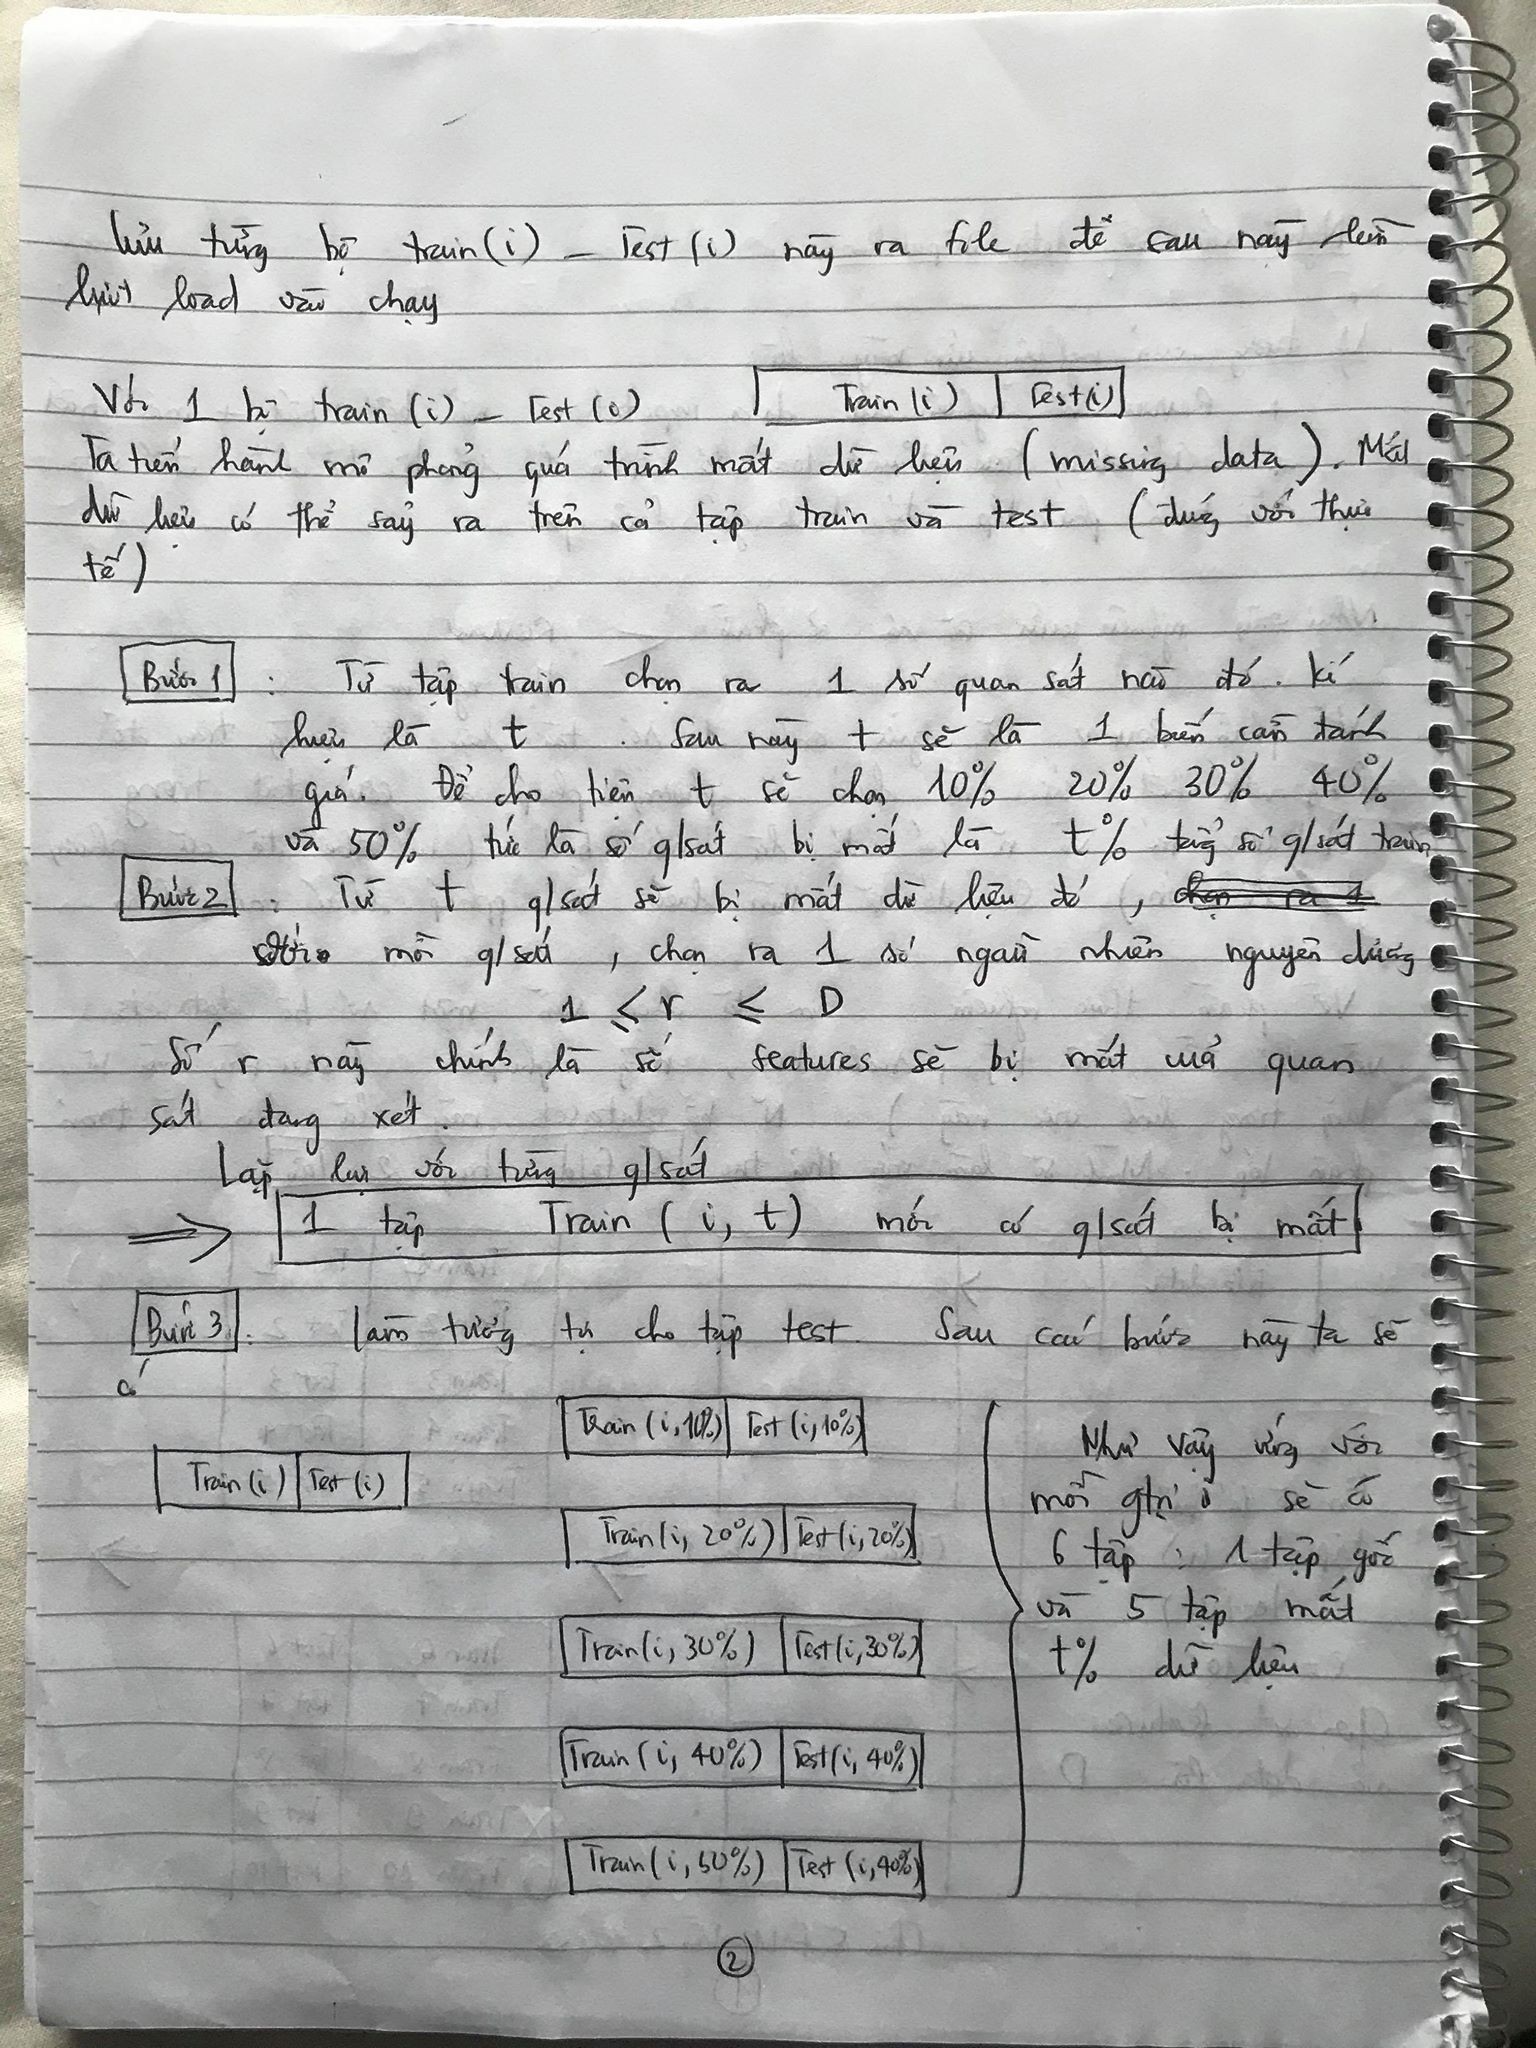 Lưu từng bộ train(i) – Test(i) này ra file để sau này lần
lượt load vào chạy
Với 1 bộ train(i) – Test(i)
Train(i) Test(i)
Ta tiến hành mô phỏng quá trình mất dữ liệu (missing data). Mất
dữ liệu có thể sảy ra trên cả tập train và test (đúng với thực
tế)
Bước 1 : Từ tập train chọn ra 1 số quan sát nào đó. Kí
hiệu là t. Sau này t sẽ là 1 biến cần đánh
giá. Để cho tiện t sẽ chọn 10% 20% 30% 40%
và 50% tức là số q/sát bị mất là t% tổng số q/sát train
Bước 2 : Từ t q/sát sẽ bị mất dữ liệu đó,
với mỗi q/sát, chọn ra 1 số ngẫu nhiên nguyên dương
1 ≤ r ≤ D
Số r này chính là số features sẽ bị mất của quan
sát đang xét.
Lặp lại với từng q/sát
⇒ 1 tập Train(i, t) mới có q/sát bị mất
Bước 3 : Làm tương tự cho tập test. Sau các bước này ta sẽ
có
Train(i) Test(i)
Train(i, 10%) Test(i, 10%)
Train(i, 20%) Test(i, 20%)
Train(i, 30%) Test(i, 30%)
Train(i, 40%) Test(i, 40%)
Train(i, 50%) Test(i, 40%)
Như vậy ứng với
mỗi gtrị i sẽ có
6 tập : 1 tập gốc
và 5 tập mất
t% dữ liệu
2